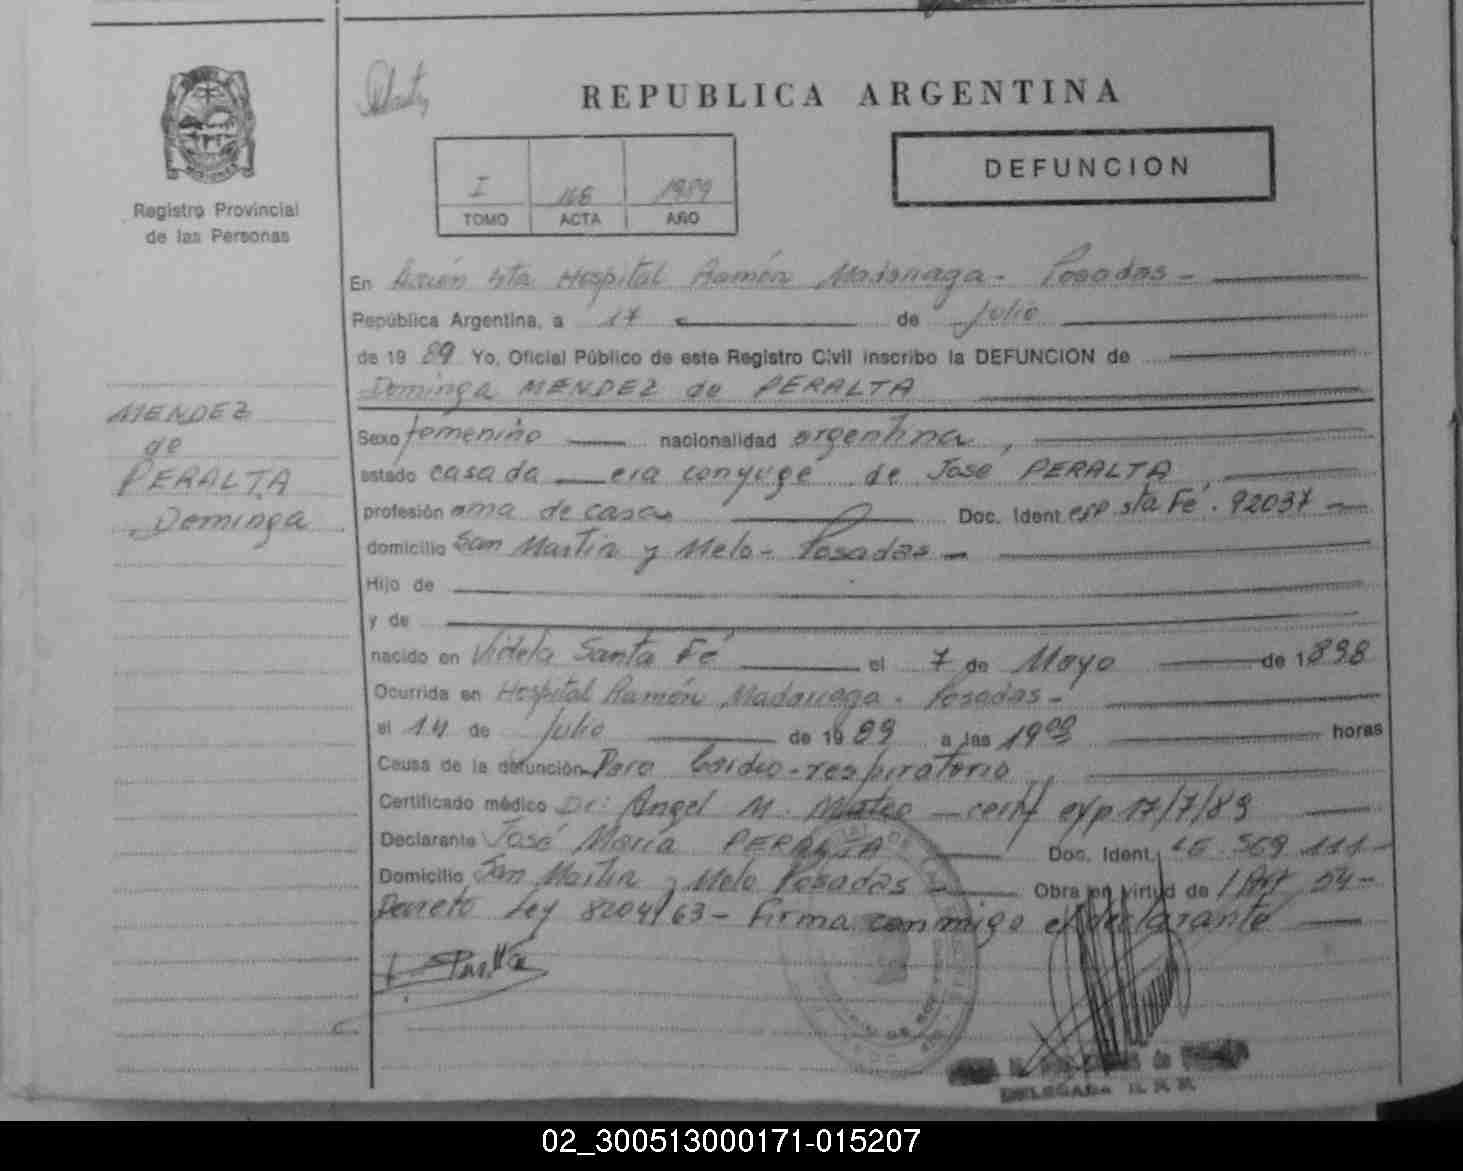 REPUBLICA ARGENTINA
I 1989
TOMO ACTA AÑO
DEFUNCION
Registro Provincial
de las Personas
MENDEZ
de
PERALTA
Dominga
En Sección 4ta Hospital Ramón Madariaga - Posadas -
República Argentina, a 17 de Julio
de 19 89 Yo, Oficial Público de este Registro Civil inscribo la DEFUNCION de
Dominga MENDEZ de PERALTA
Sexo femenino nacionalidad argentina,
estado casada era conyuge de José PERALTA
profesión ama de casa Doc. Ident. exp Sta Fé. 92037 -
domicilio San Martín y Melo - Posadas -
Hijo de
y de
nacido en Videla Santa Fé el 7 de Mayo de 1898
Ocurrida en Hospital Ramón Madariaga - Posadas -
el 14 de Julio de 1989 a las 19 00 horas
Causa de la defunción Paro Cardio-respiratorio
Certificado médico Dr: Angel M. Mateo - certif exp 17/7/89
Declarante José María PERALTA Doc. Ident. LE. 111 -
Domicilio San Martín y Melo Posadas - Obra en virtud de Art 54 -
Decreto Ley 8204/63 - Firma conmigo el declarante
DELEGADA R. P. P.
02_300513000171-015207